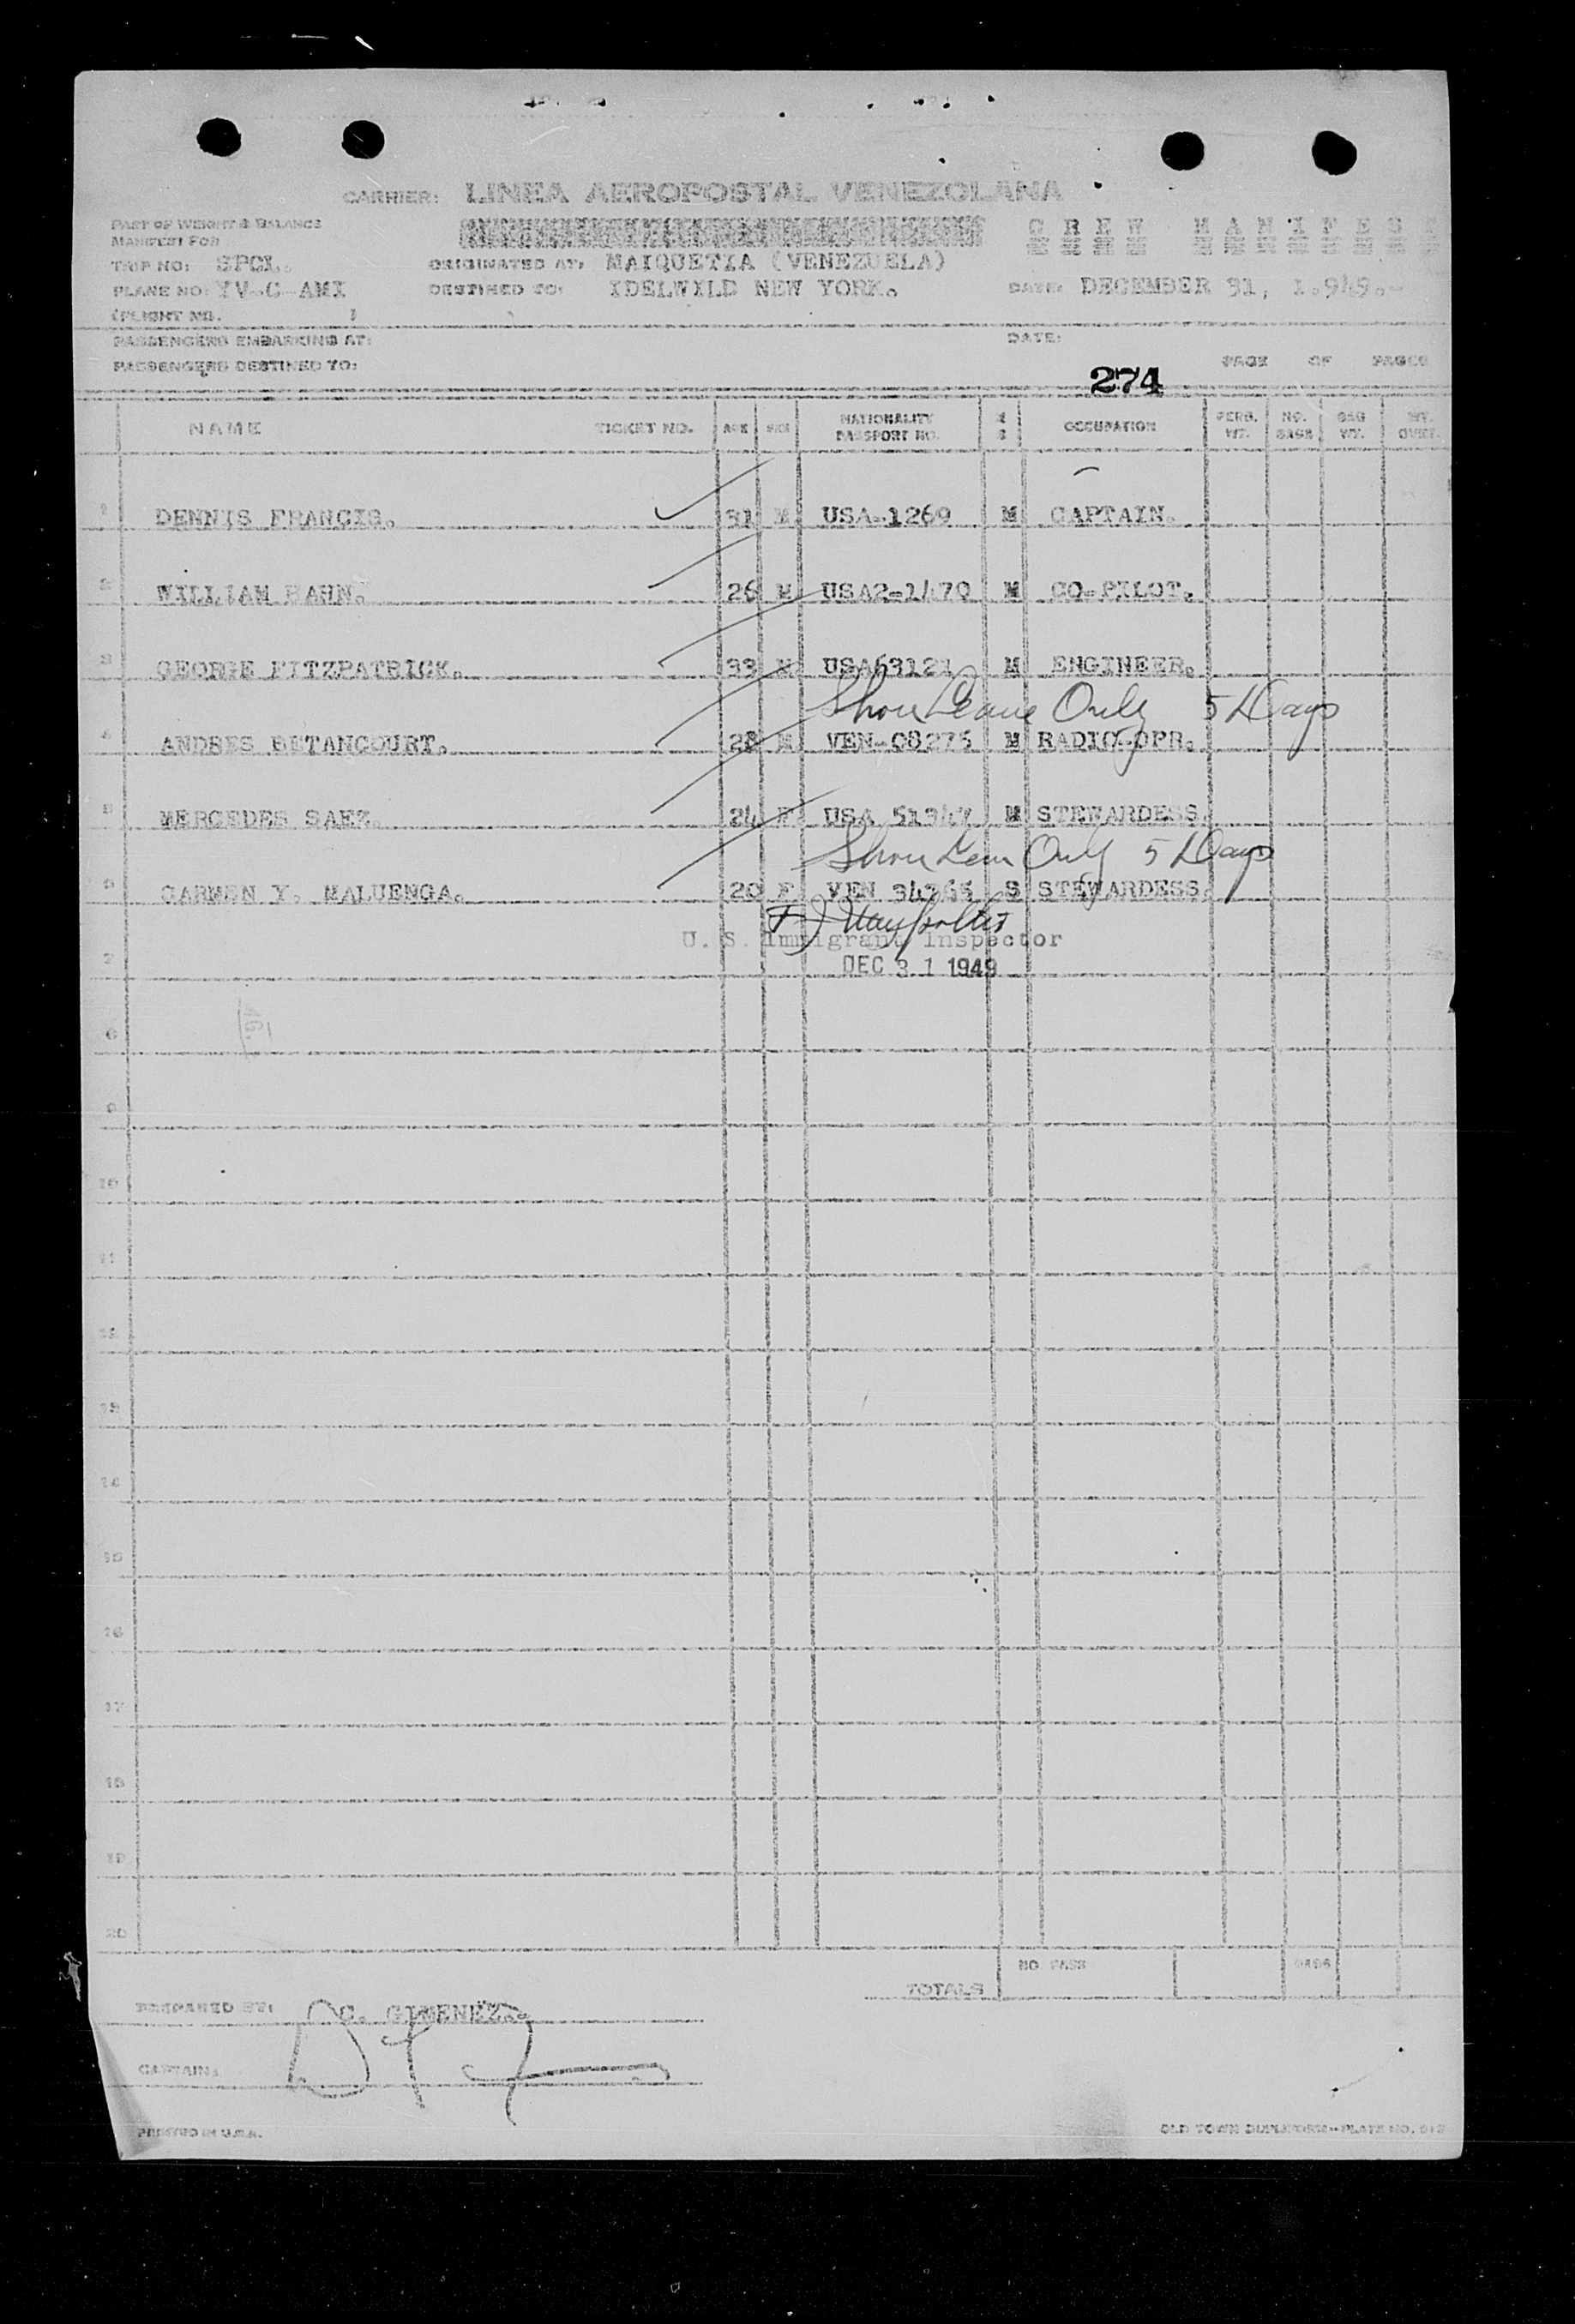 CARRIER: LINEA AEROPOSTAL VENEZOLANA
PART OF WEIGHT & BALANCE
MANIFEST FOR
CREW MANIFEST
TRIP NO: SPCL.
ORIGINATED AT: MAIQUETIA (VENEZUELA)
PLANE NO: YV-C-AMI
DESTINED TO: IDELWILD NEW YORK.
DATE: DECEMBER 31, 1.949.-
(FLIGHT NO. )
PASSENGERS EMBARKING AT:
DATE:
PASSENGERS DESTINED TO:
PAGE OF PAGES
274
NAME TICKET NO. AGE SEX NATIONALITY PASSPORT NO. M S OCCUPATION PERS. WT. NO. BAGS BAG WT. WT. OVER.
1 DENNIS FRANCIS. 31 M USA-1269 M CAPTAIN.
2 WILLIAM 26 M USA2-1470 M CO-PILOT.
3 GEORGE FITZPATRICK. 33 M USA63121 M ENGINEER.
Shore Leave Only 5 Days
4 ANDRES BETANCOURT. 28 M VEN-08275 M RADIO-OPR.
5 MERCEDES SAEZ. 24 F USA 51347 M STEWARDESS.
Shore Leave Only 5 Days
6 CARMEN Y. MALUENGA. 20 F VEN 34365 S STEWARDESS.
U. S. Immigrant Inspector
7
DEC 31 1949
8
9
10
11
12
13
14
15
16
17
18
19
20
NO. PASS BAGS
TOTALS
PREPARED BY: C. GIMENEZ.
CAPTAIN:
PRINTED IN U.S.A.
OLD TOWN